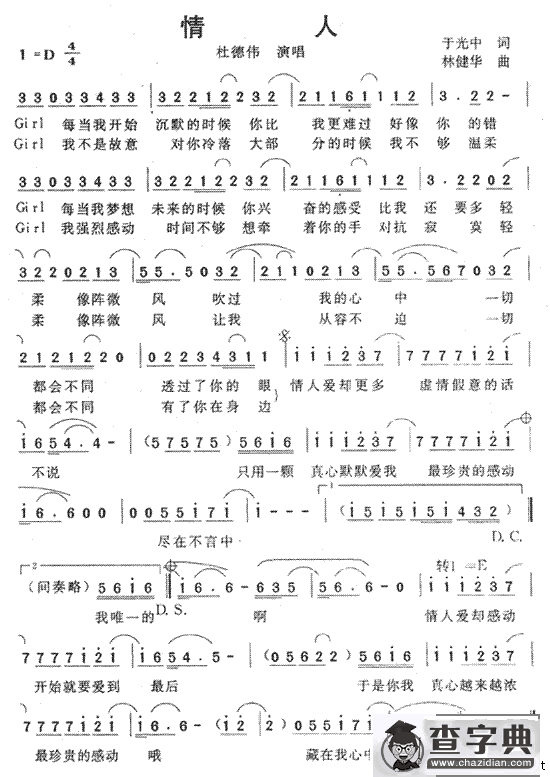 情 人
1=D 4/4 杜德伟 演唱 于光中 词
林健华 曲
33033433 | 32212232 | 21161112 | 3.22-
Girl 每当我开始 沉默的时候 你比 我更难过 好像 你 的错
Girl 我不是故意 对你冷落 大部 分的时候 我不 够 温柔
33033433 | 32212232 | 21161112 | 3.2202
Girl 每当我梦想 未来的时候 你兴 奋的感受 比我 还 要多轻
Girl 我强烈感动 时间不够 想牵 着你的手 对抗 寂 寞轻
32200213 | 55.5032 | 21100213 | 55.567032
柔 像阵微 风 吹过 我的心 中 一切
柔 像阵微 风 让我 从容不 迫 一切
21212220 | 022344311 | 111237 | 7777121
都会不同 透过了你的 眼 情人爱却更多 虚情假意的话
都会不同 有了你在身 边
1654.4- | (57575) | 5616 | 111237 | 7777121
不说 只用一颗 真心默默爱我 最珍贵的感动
16.600 | 0055171 | 1--- | (1515151432)
尽在不言中 D.C.
2 转1=E
(间奏略) 5616 | 16.6- | 635 | 56.6-0 | 111237
我唯一的 D.S. 啊 情人爱却感动
7777121 | 1654.5- | (05622) | 5616 | 111237
开始就要爱到 最后 于是你我 真心越来越浓
7777121 | 16.6- | (12 | 2) | 0055171
最珍贵的感动 哦 藏在我心中
查字典
www.chazidian.com